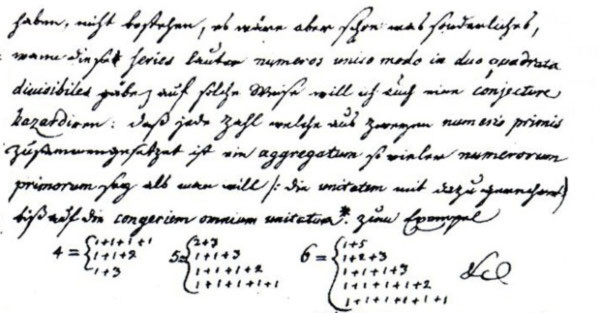 haben, nicht bestehen, es wäre aber schon was sonderliches,
wann eine series lauter numeros unico modo in duo quadrata
divisibiles gäbe, auf solche Weise will ich auch eine conjecture
hazardiren: daß jede Zahl welche aus zweyen numeris primis
zusammengesetzet ist ein aggregatum so vieler numerorum
primorum sey als man will /: die unitatem mit dazu gerechnet)
biß auf die congeriem omnium unitatum*. zum Exempel
4 = { 1+1+1+1
1+1+2
1+3
5= { 2+3
1+1+3
1+1+1+2
1+1+1+1+1
6 = { 1+5
1+2+3
1+1+1+3
1+1+1+1+2
1+1+1+1+1+1
&c